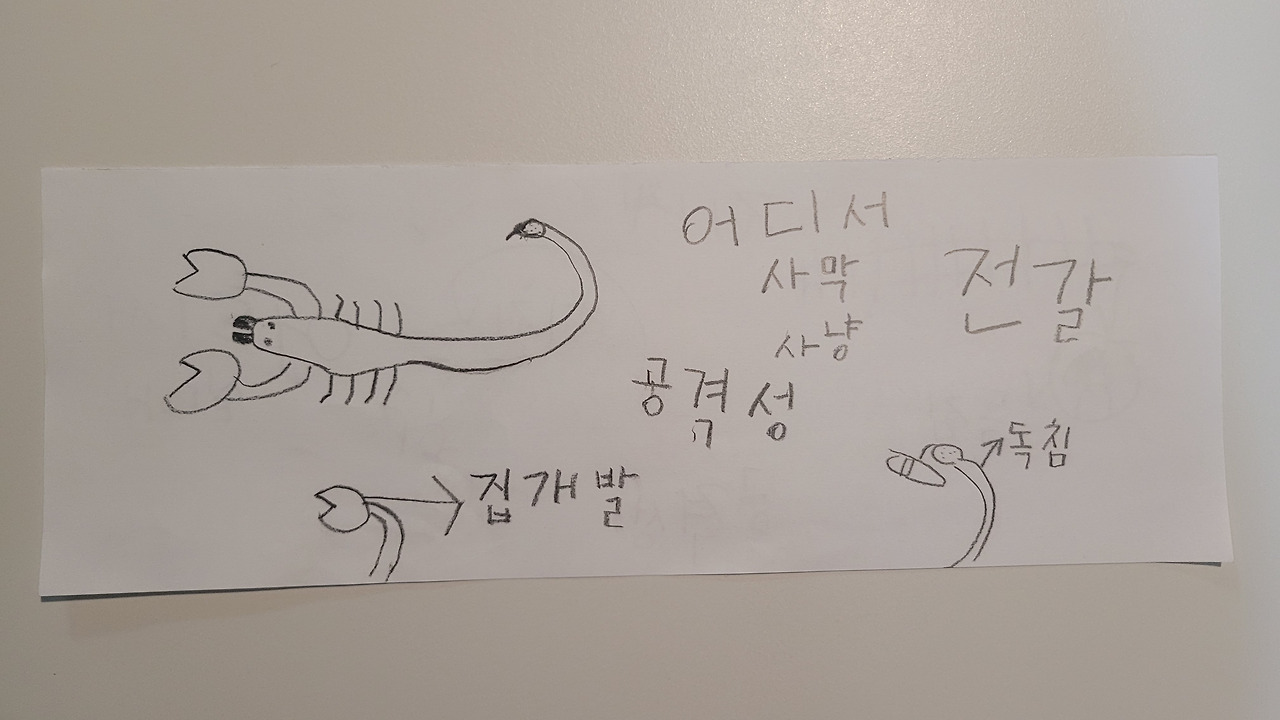 어디서
사막
전갈
사냥
공격성
독침
집개발